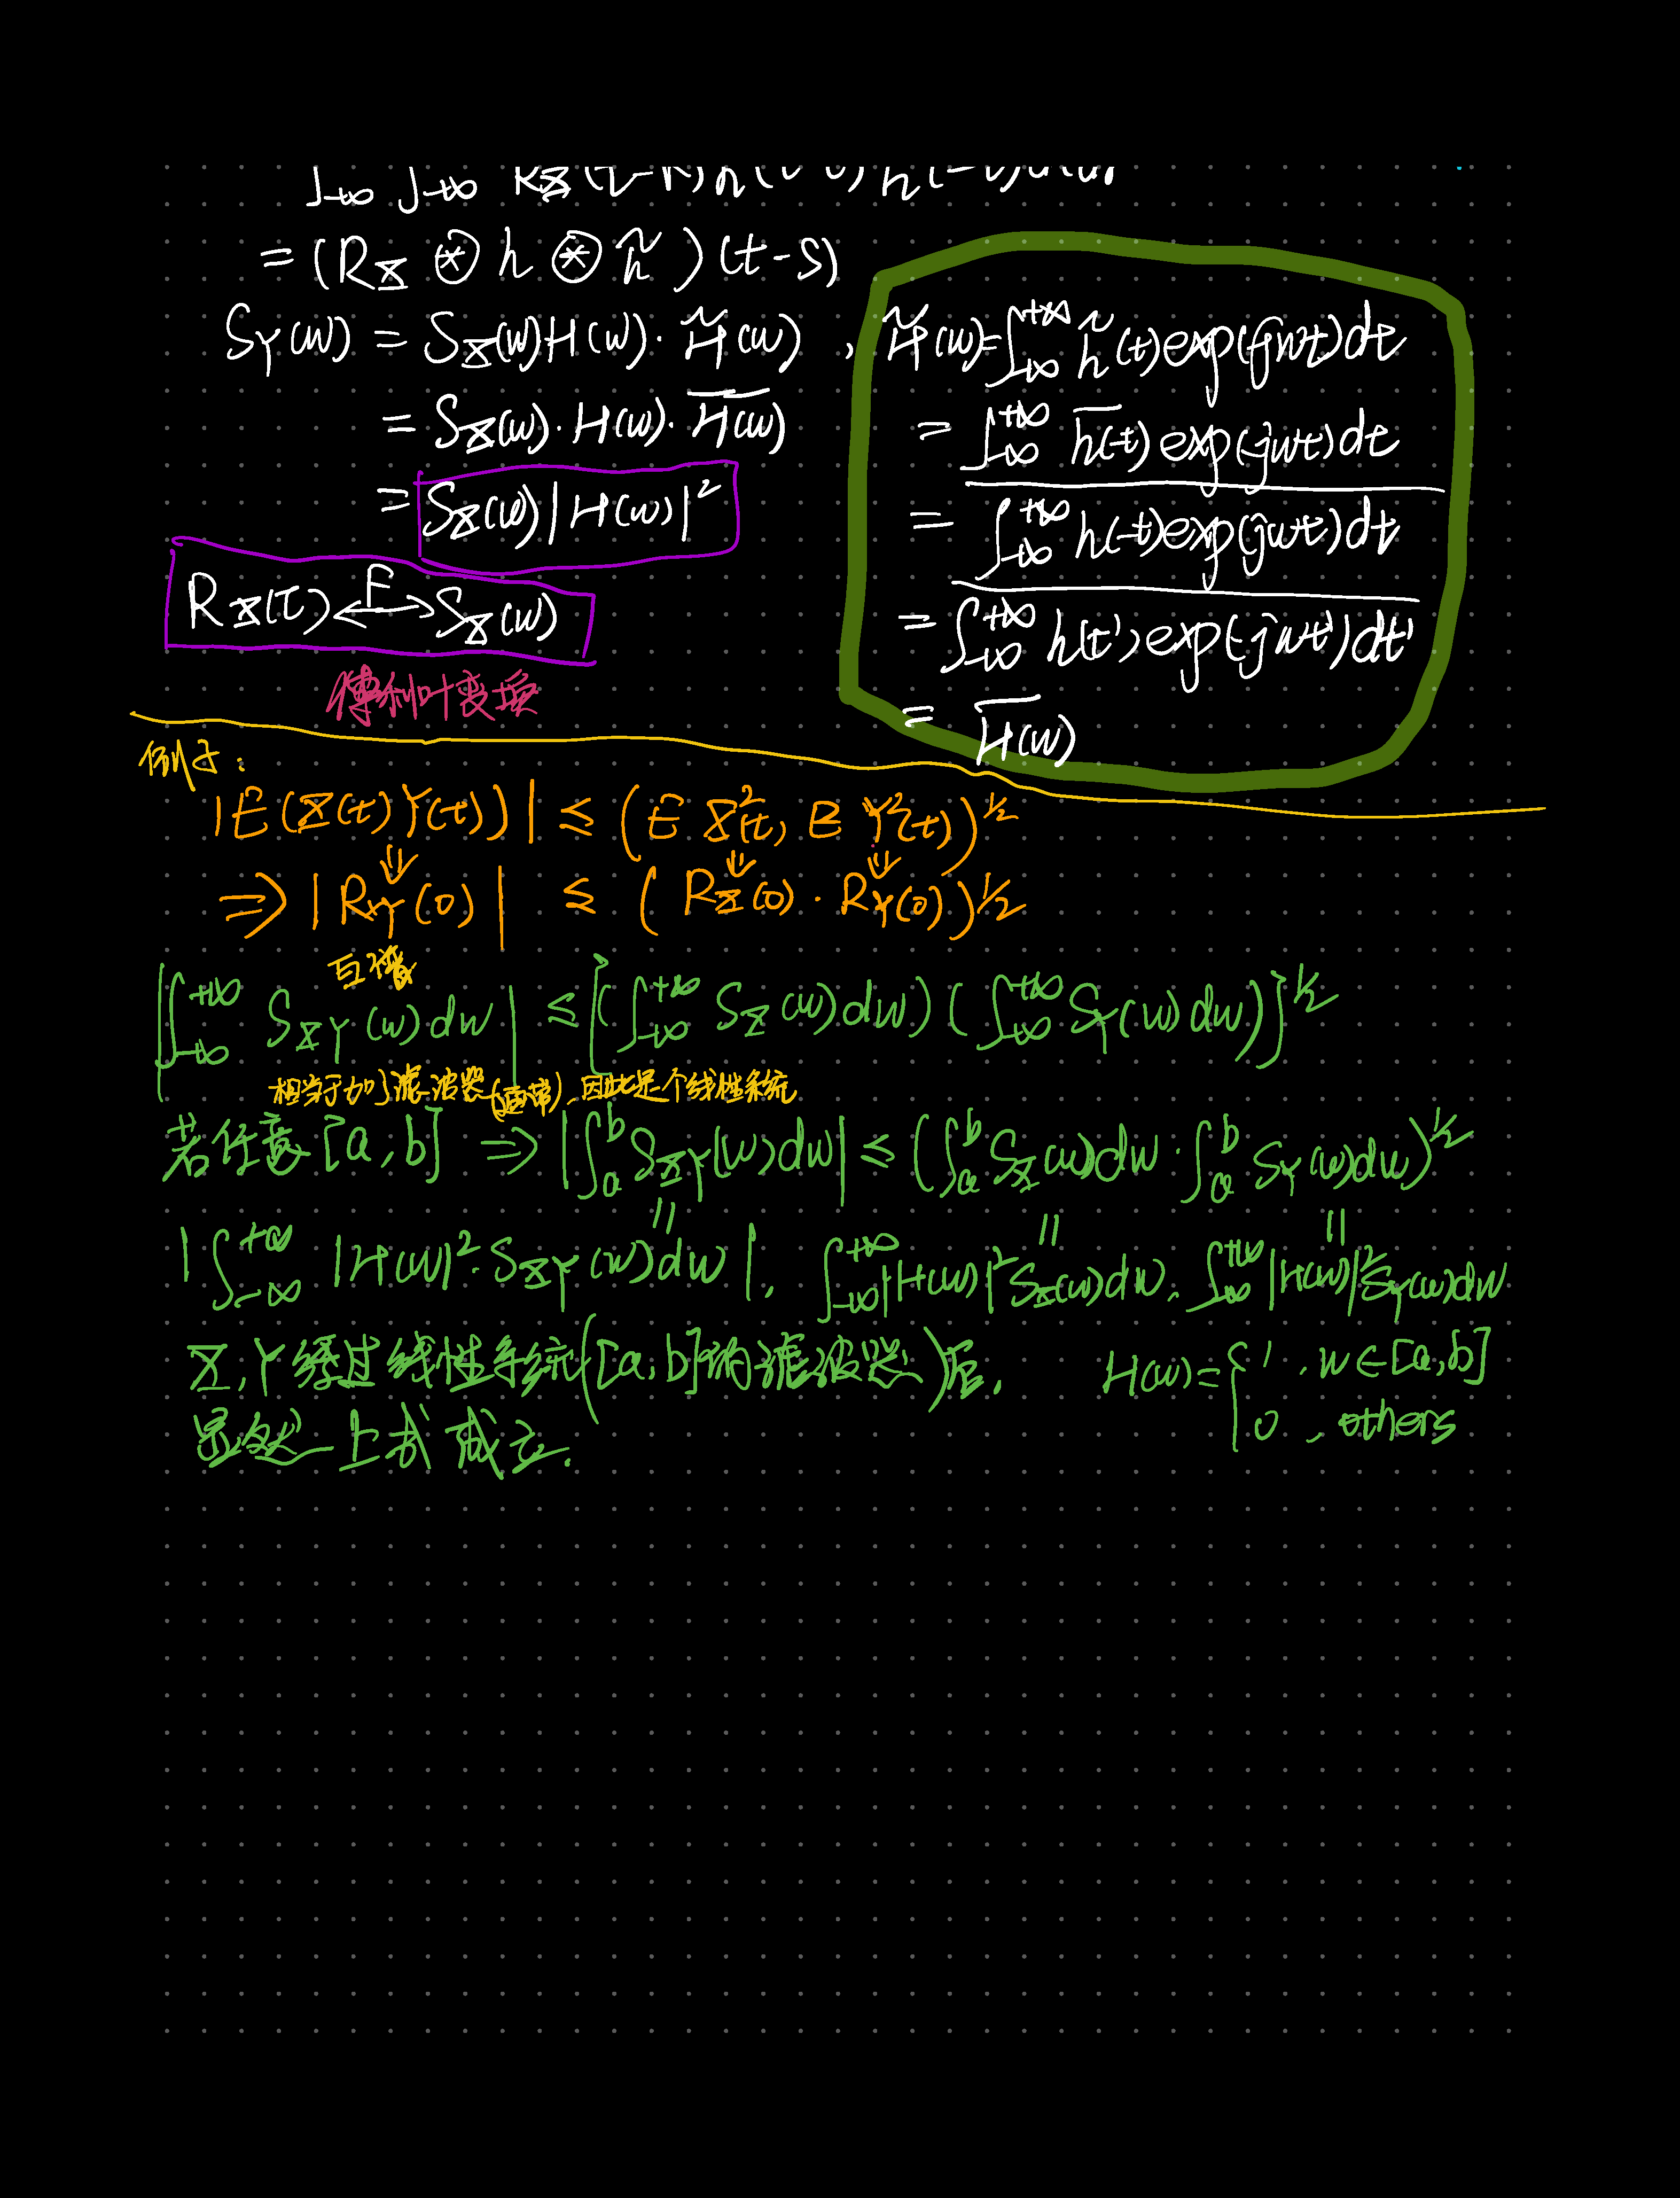 = (R_X ⊛ h ⊛ h̃)(t-s)
S_Y(w) = S_X(w)H(w)·H̃(w) , H̃(w)=∫_{-∞}^{+∞} h̃(t)exp(-jwt)dt
= S_X(w)·H(w)·\overline{H(w)}
= ∫_{-∞}^{+∞} \overline{h(-t)} exp(-jwt)dt
= S_X(w)|H(w)|²
= \overline{∫_{-∞}^{+∞} h(-t)exp(jwt)dt}
R_X(τ) ←F→ S_X(w)
= \overline{∫_{-∞}^{+∞} h(t')exp(-jwt')dt'}
傅利叶变换
= \overline{H(w)}
例子:
|E(X(t)Y(t))| ≤ (E X²(t), E Y²(t))^{1/2}
⇒ |R_{XY}(0)| ≤ (R_X(0)·R_Y(0))^{1/2}
互谱
|∫_{-∞}^{+∞} S_{XY}(w)dw| ≤ [(∫_{-∞}^{+∞} S_X(w)dw)(∫_{-∞}^{+∞} S_Y(w)dw)]^{1/2}
相当于加了滤波器(通带),因此是个线性系统
若任意[a,b] ⇒ |∫_a^b S_{XY}(w)dw| ≤ (∫_a^b S_X(w)dw·∫_a^b S_Y(w)dw)^{1/2}
|∫_{-∞}^{+∞} |H(w)|²·S_{XY}(w)dw|, ∫_{-∞}^{+∞}|H(w)|²S_X(w)dw, ∫_{-∞}^{+∞}|H(w)|²S_Y(w)dw
X,Y经过线性系统([a,b]的滤波器)后, H(w)={1 , w∈[a,b]
显然上式成立. 0 , others